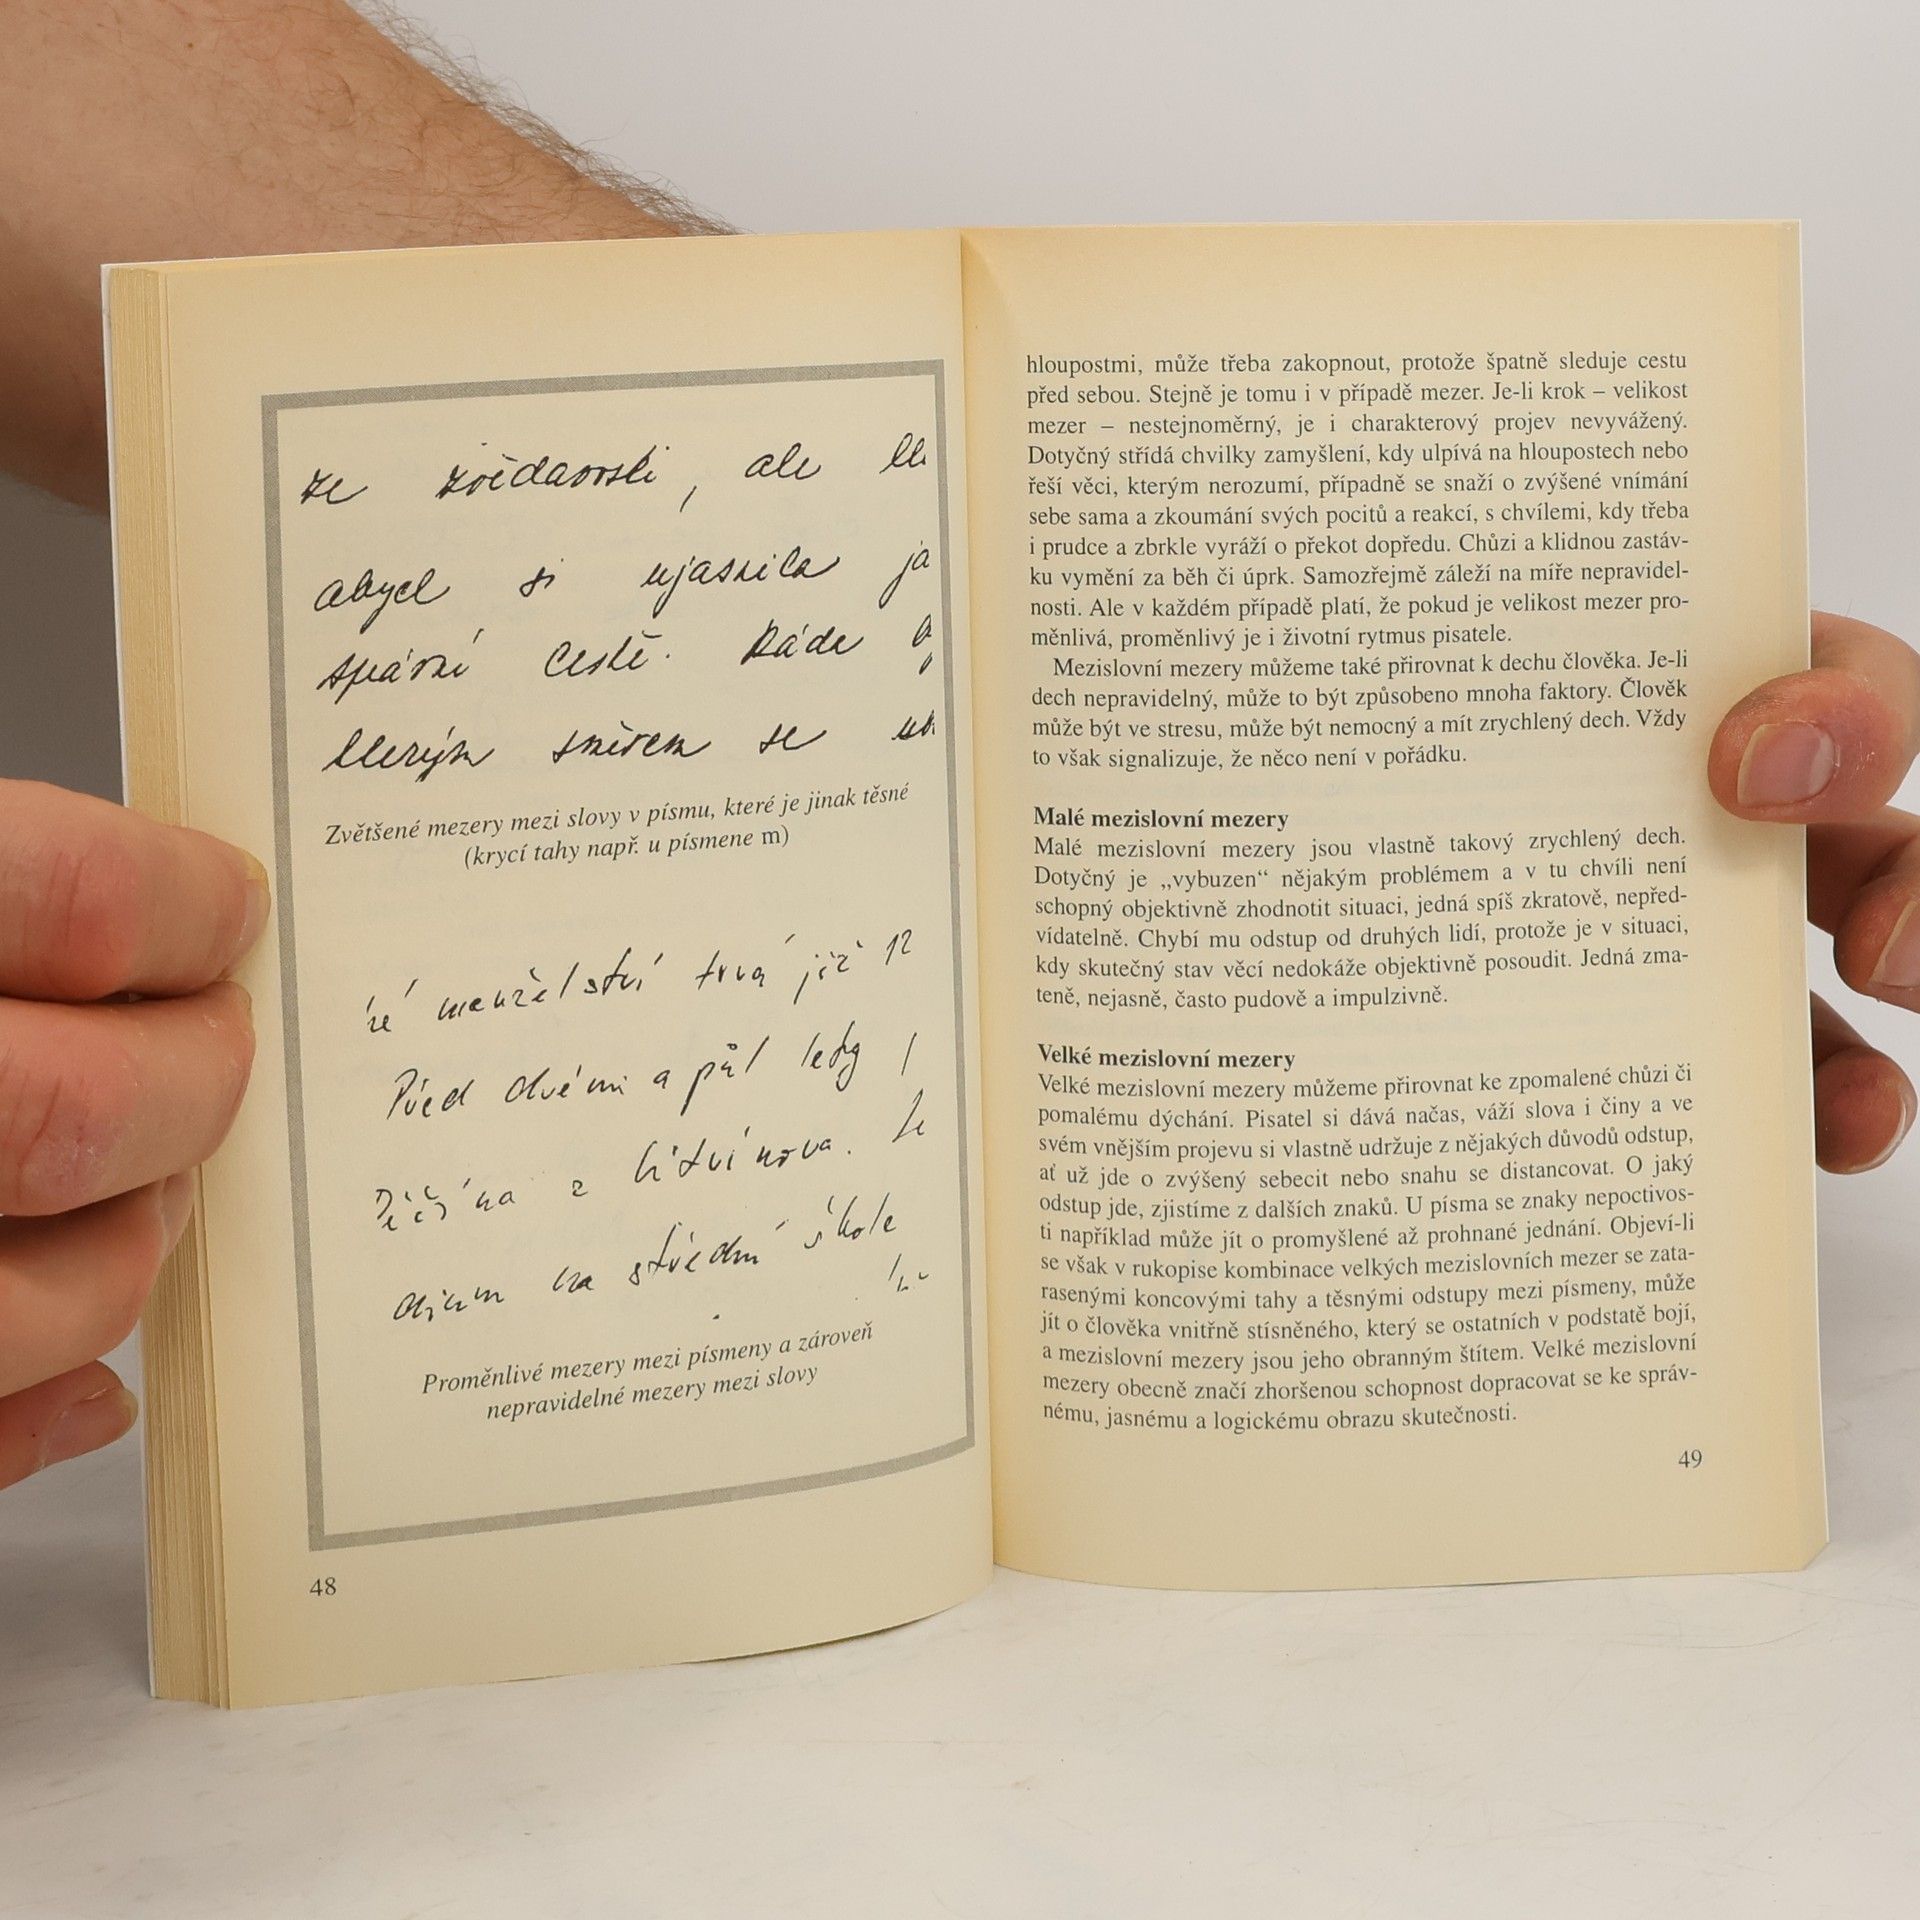 ze zvědavosti, ale
abych si ujasnila ja
správné cestě. Ráda
kterým směrem se
Zvětšené mezery mezi slovy v písmu, které je jinak těsné
(krycí tahy např. u písmene m)
manželství trvá již 12
Před dvěmi a půl lety
z Litvínova. Je
na střední škole
Proměnlivé mezery mezi písmeny a zároveň
nepravidelné mezery mezi slovy
48
hloupostmi, může třeba zakopnout, protože špatně sleduje cestu
před sebou. Stejně je tomu i v případě mezer. Je-li krok – velikost
mezer – nestejnoměrný, je i charakterový projev nevyvážený.
Dotyčný střídá chvilky zamyšlení, kdy ulpívá na hloupostech nebo
řeší věci, kterým nerozumí, případně se snaží o zvýšené vnímání
sebe sama a zkoumání svých pocitů a reakcí, s chvílemi, kdy třeba
i prudce a zbrkle vyráží o překot dopředu. Chůzi a klidnou zastáv-
ku vymění za běh či úprk. Samozřejmě záleží na míře nepravidel-
nosti. Ale v každém případě platí, že pokud je velikost mezer pro-
měnlivá, proměnlivý je i životní rytmus pisatele.
Mezislovní mezery můžeme také přirovnat k dechu člověka. Je-li
dech nepravidelný, může to být způsobeno mnoha faktory. Člověk
může být ve stresu, může být nemocný a mít zrychlený dech. Vždy
to však signalizuje, že něco není v pořádku.
Malé mezislovní mezery
Malé mezislovní mezery jsou vlastně takový zrychlený dech.
Dotyčný je „vybuzen“ nějakým problémem a v tu chvíli není
schopný objektivně zhodnotit situaci, jedná spíš zkratově, nepřed-
vídatelně. Chybí mu odstup od druhých lidí, protože je v situaci,
kdy skutečný stav věcí nedokáže objektivně posoudit. Jedná zma-
teně, nejasně, často pudově a impulzivně.
Velké mezislovní mezery
Velké mezislovní mezery můžeme přirovnat ke zpomalené chůzi či
pomalému dýchání. Pisatel si dává načas, váží slova i činy a ve
svém vnějším projevu si vlastně udržuje z nějakých důvodů odstup,
ať už jde o zvýšený sebecit nebo snahu se distancovat. O jaký
odstup jde, zjistíme z dalších znaků. U písma se znaky nepoctivos-
ti například může jít o promyšlené až prohnané jednání. Objeví-li
se však v rukopise kombinace velkých mezislovních mezer se zata-
rasenými koncovými tahy a těsnými odstupy mezi písmeny, může
jít o člověka vnitřně stísněného, který se ostatních v podstatě bojí,
a mezislovní mezery jsou jeho obranným štítem. Velké mezislovní
mezery obecně značí zhoršenou schopnost dopracovat se ke správ-
nému, jasnému a logickému obrazu skutečnosti.
49